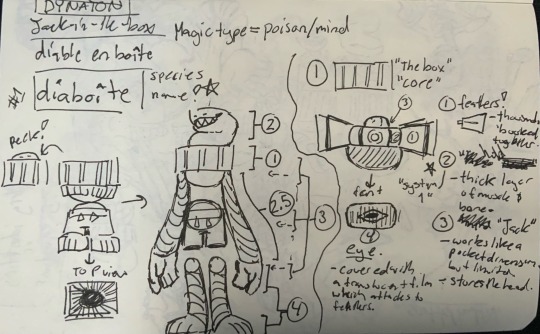 DYNATON
Jack-in-the-box
diable en boîte
#1
diaboîte
species
name?
Magic type = poison/mind
peek!
TOP view
2
1
2.5
3
4
1
"The box"
"core"
3
1
2
1
feathers?
- thousands
hooked
together
"system
1"
2
- thick layer
of muscle &
bone
3
"Jack"
- works like a
pocket dimension
but limited
- stores the head.
4
eye.
- covered with
a translucent film
which attaches to
feathers.